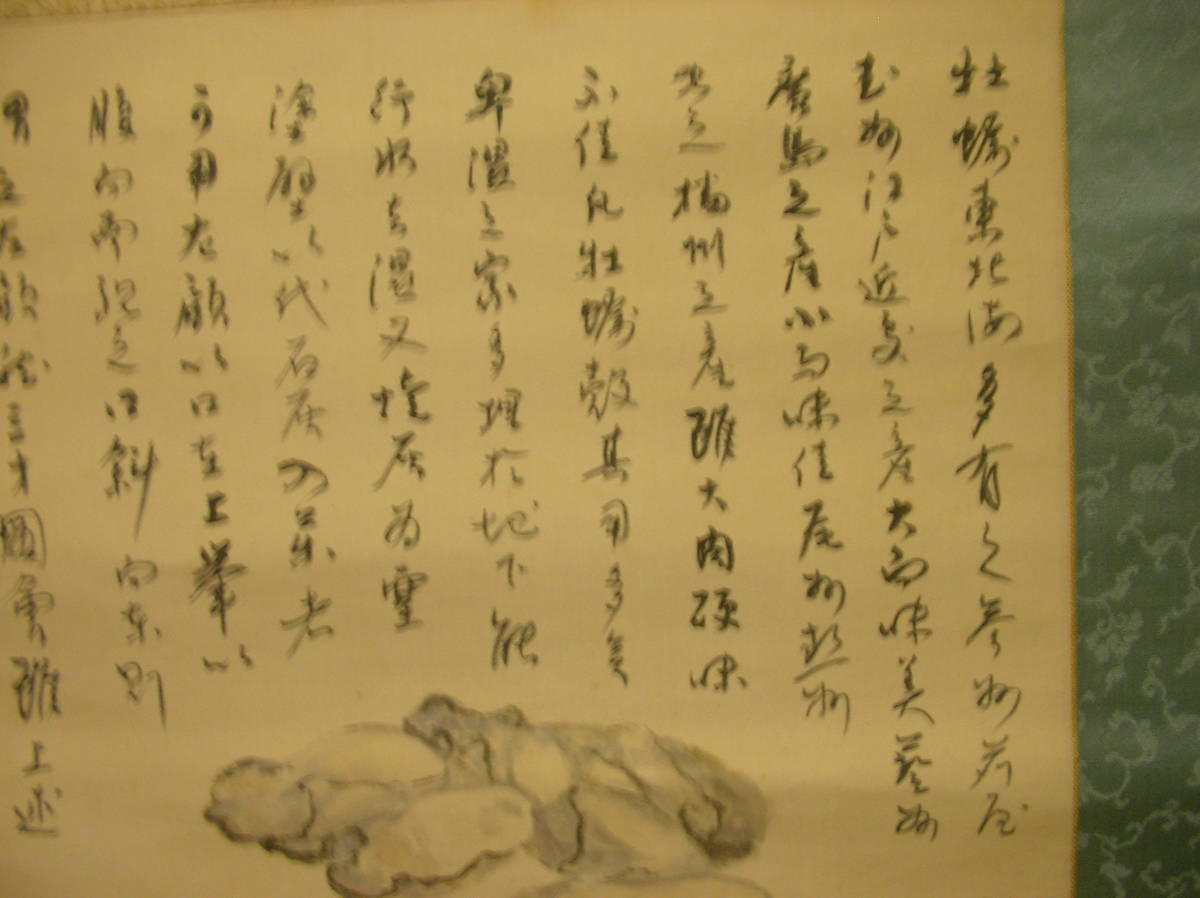 牡蠣東北海多有之参州苅屋
武州江戸近処之産大而味美藝州
廣島之産小而味佳尾州勢州
次之播州之産雖大肉硬味
不佳凡牡蠣殻其用多矣
卑湿之家多埋於地下能
行水去湿又燒灰為堊
塗壁以代石灰入薬者
可用左顧以口在上擧以
腹向南視之口斜向東則
左顧 三才圖會雖上述